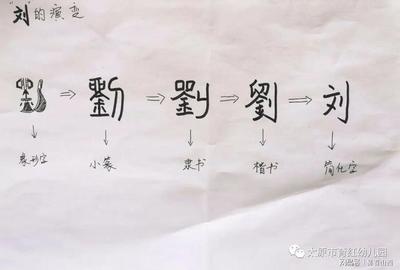 "刘"的演变
⇒ 劉 ⇒ 劉 ⇒ 劉 ⇒ 刘
↓ ↓ ↓ ↓ ↓
象形字 小篆 隶书 楷书 简化字
太原市育红幼儿园